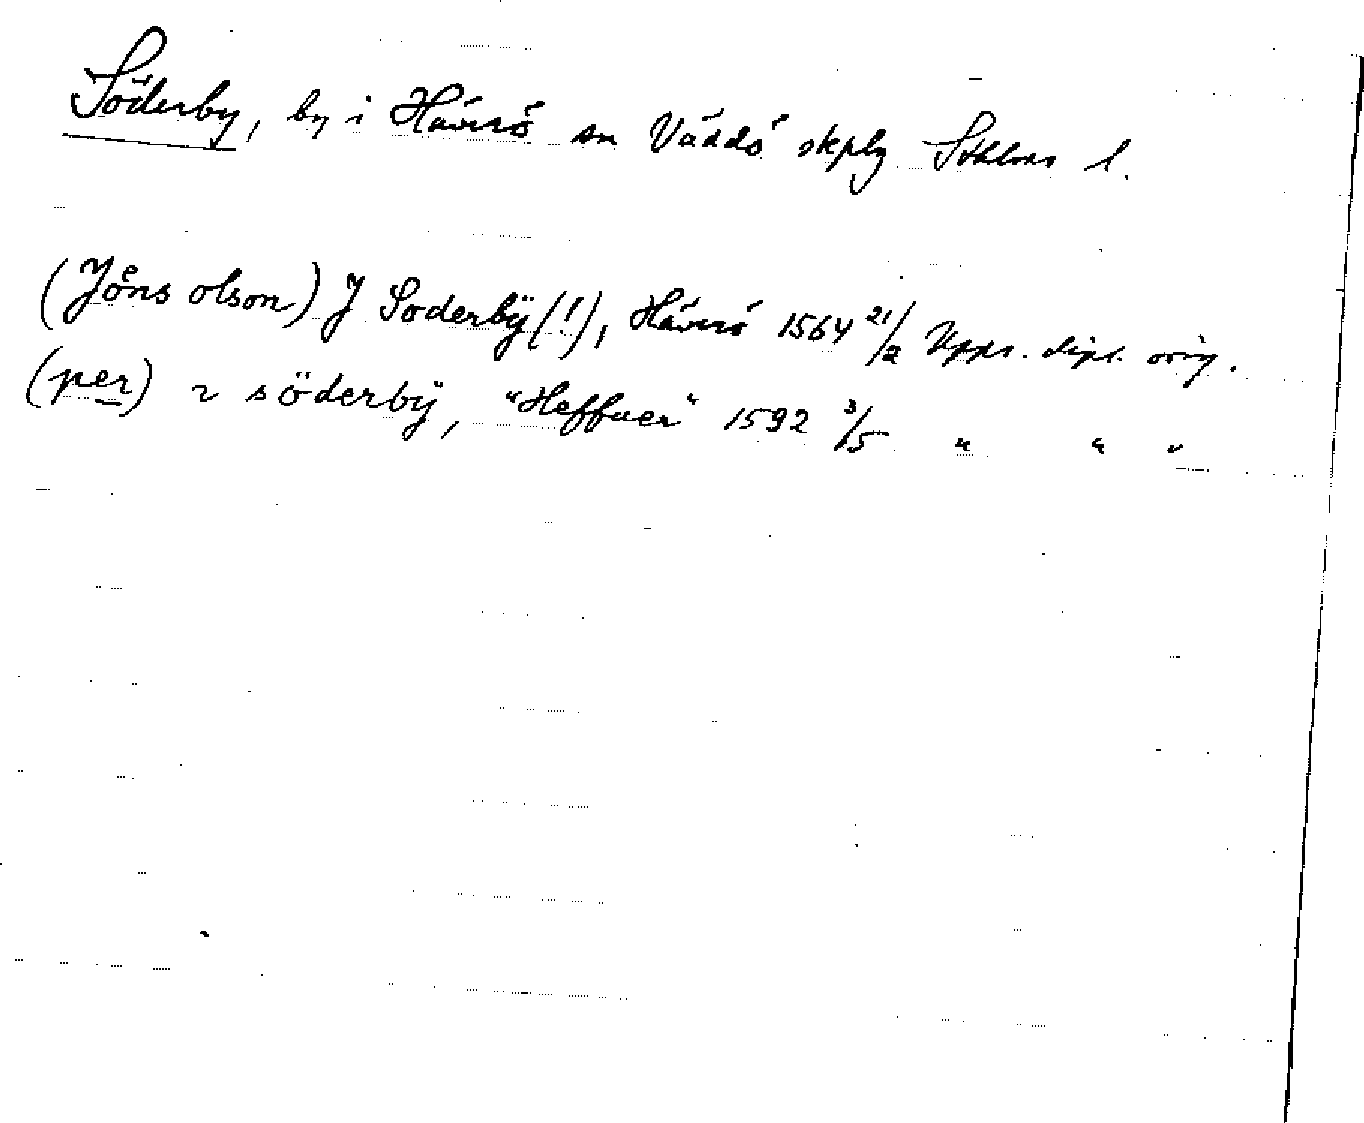 Söderby, by i Häverö sn Väddö skplg Sthlms l.
(Jöns olson) J Soderbÿ(!), Häverö 1564 21/2 Upps. dipl. orig.
(per) 2 söderbÿ, "Heffuer" 1592 3/5 " " "